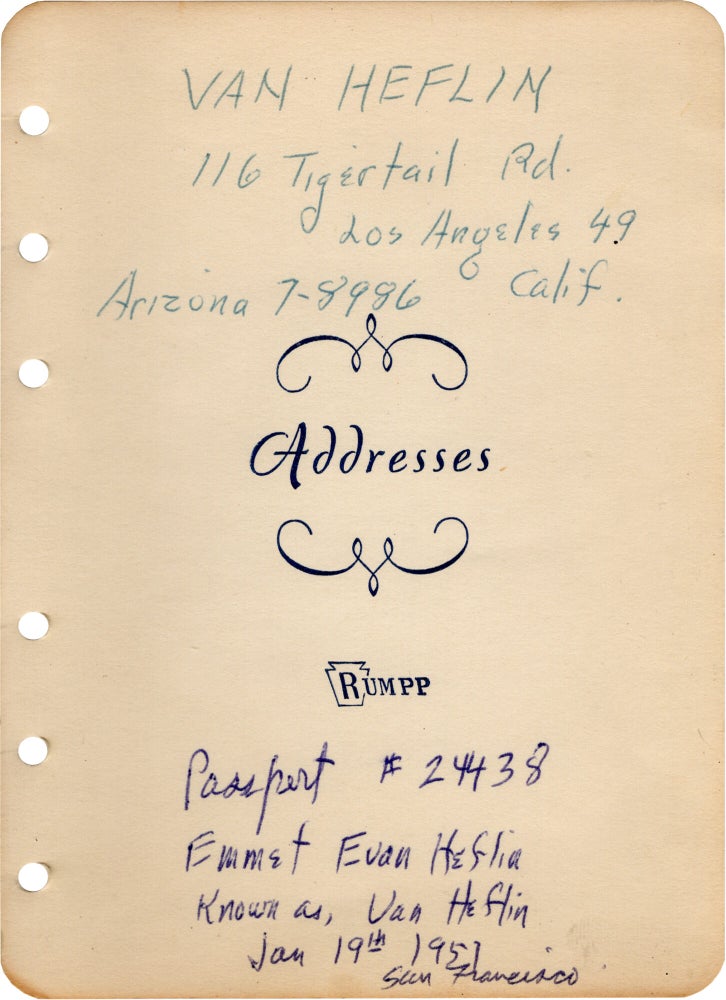 VAN HEFLIN
116 Tigertail Rd.
Los Angeles 49
Arizona 7-8986 Calif.
Addresses
RUMPP
Passport # 24438
Emmet Evan Heflin
Known as, Van Heflin
Jan 19th 1951
San Francisco